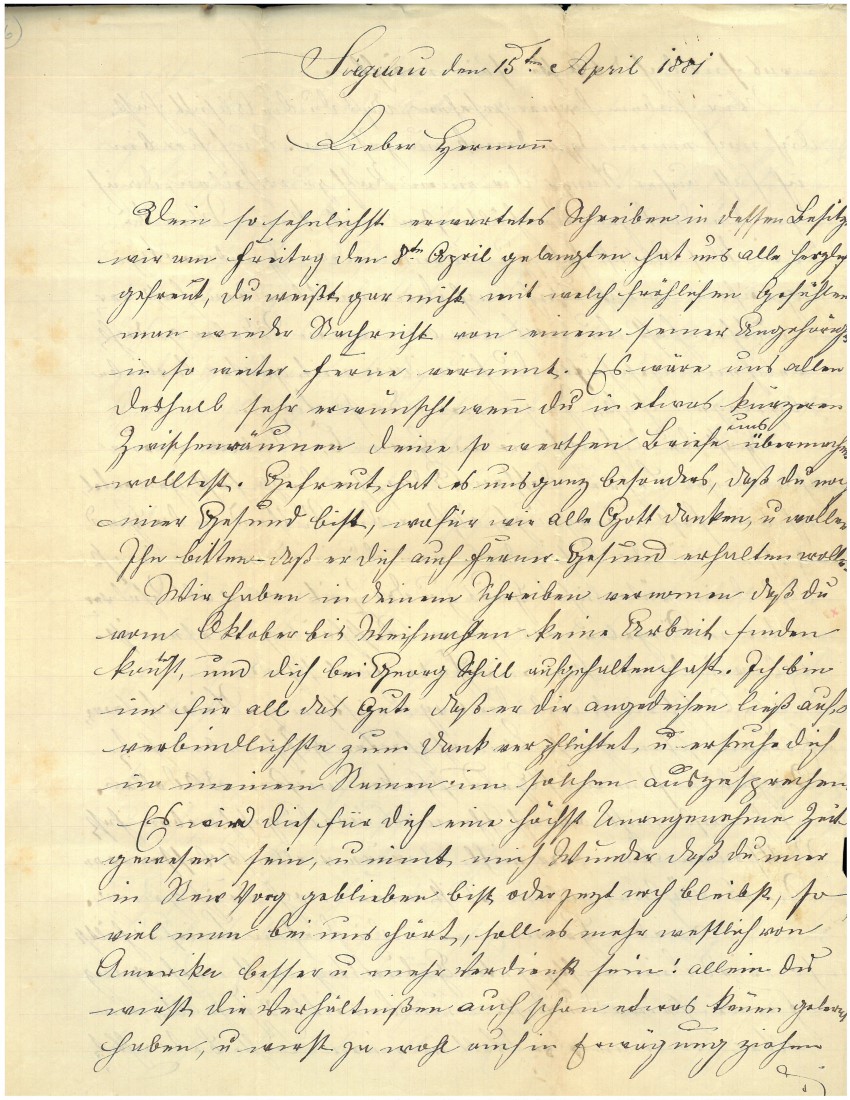 Siegelau den 15ten April 1881
Lieber Hermann
Dein so sehnlichst erwartetes Schreiben in dessen Besitz
wir am Freitag den 8ten April gelangten hat uns alle herzlich
gefreut, du weißt gar nicht mit welch fröhlichen Gefühlen
man wieder Nachricht von einem seiner Angehörigen
in so weiter Ferne vernimt. Es wäre uns allen
deshalb sehr erwünscht wenn du in etwas kürzeren
Zwischenräumen deine so werthen Briefe uns übermachen
wolltest. Gefreut hat es uns ganz besonders, daß du noch
imer Gesund bist, wofür wir alle Gott danken, u wollen
Ihn bitten daß er dich auch ferner Gesund erhalten wolle.
Wir haben in deinem Schreiben vernomen daß du
vom Oktober bis Weihnachten keine Arbeit finden
kontest, und dich bei Georg Schill aufgehalten hast. Ich bin
im für all das Gute daß er dir angedeisen ließ aufs
verbindlichste zum Dank verpflichtet, u ersuche dich
in meinem Namen im solchen auszusprechen.
Es wird dies für dich eine höchst Unangenehme Zeit
gewesen sein, u nimt mich Wunder daß du imer
in New Yorg geblieben bist oder jezt noch bleibst, so
viel man bei uns hört, soll es mehr westlich von
Amerika besser u mehr Verdienst sein! allein du
wirst die Verhältnißen auch schon etwas kenen gelernt
haben, u wirst ja wohl auch in Erwägung ziehen